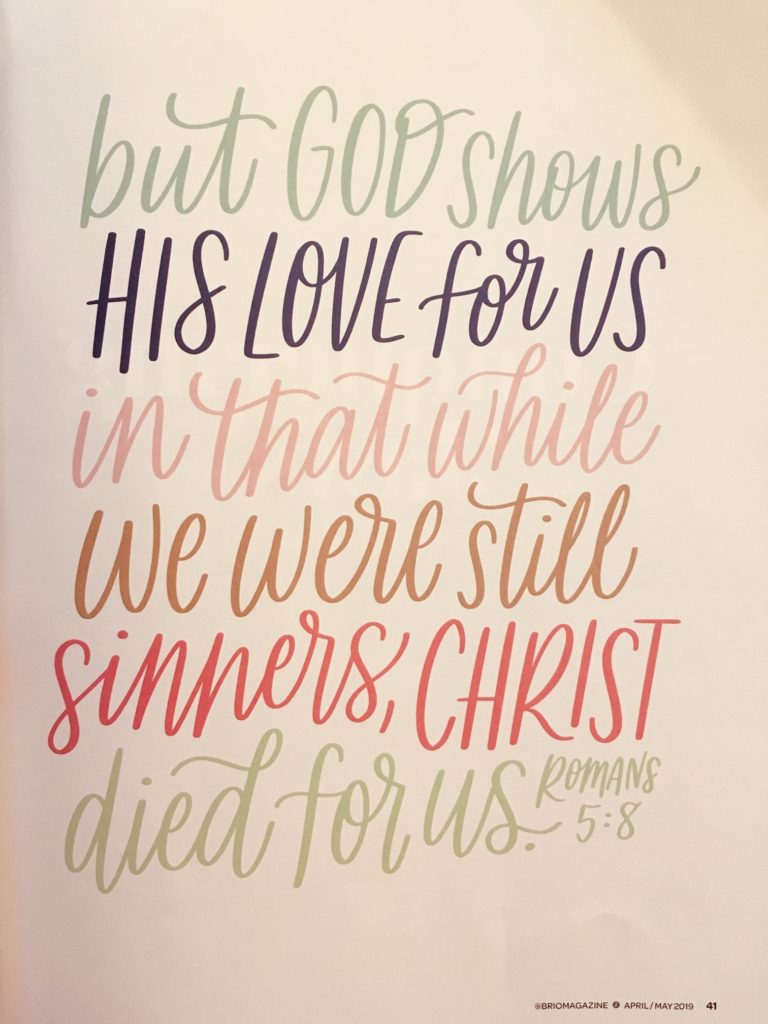 but GOD shows
HIS LOVE for US
in that while
we were still
sinners, CHRIST
died for us. ROMANS
5:8
@BRIOMAGAZINE APRIL/MAY 2019 41